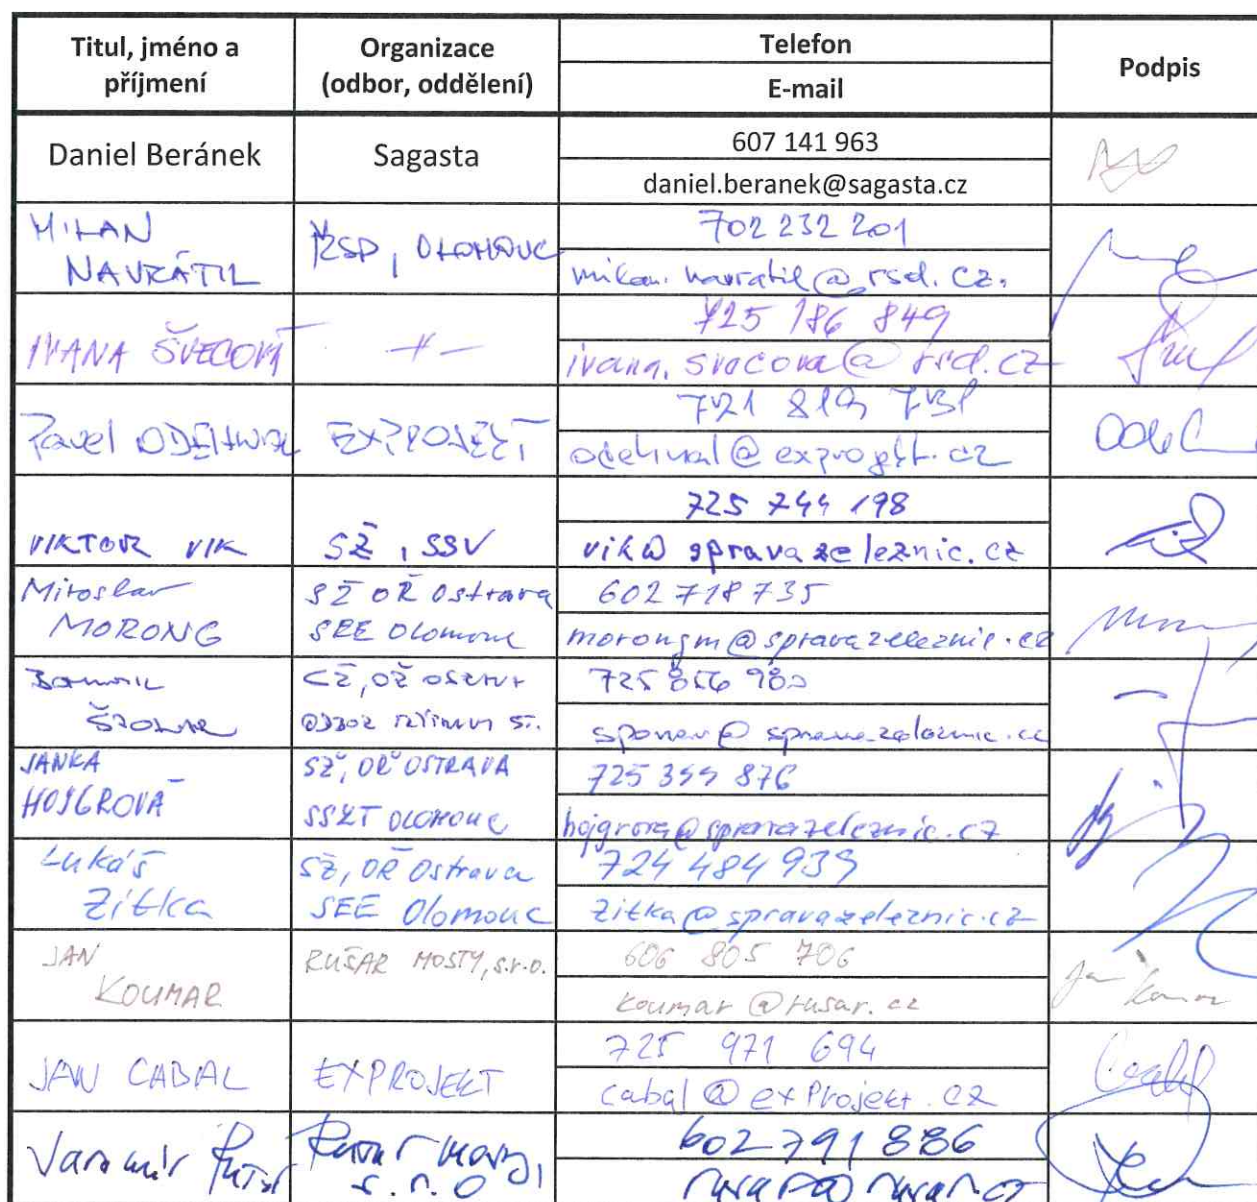 Titul, jméno a
příjmení
Organizace
(odbor, oddělení)
Telefon
E-mail
Podpis
Daniel Beránek
Sagasta
607 141 963
daniel.beranek@sagasta.cz
MILAN
NAVRÁTIL
ŘSD, OLOMOUC
702 232 201
milan.navratil@rsd.cz
IVANA ŠVECOVÁ
725 186 849
ivana.svecova@rsd.cz
Pavel ODEHNAL
EXPROJEKT
721 819 731
odehnal@exprojekt.cz
VIKTOR VIK
SŽ, SSV
725 744 198
vik@spravazeleznic.cz
Miroslav
MORONG
SŽ OŘ Ostrava
SEE Olomouc
602 718 735
morongm@spravazeleznic.cz
SŽ, OŘ
725 856 980
@spravazeleznic.cz
JANKA
HOJGROVÁ
SŽ, OŘ OSTRAVA
SSZT OLOMOUC
725 399 876
hojgrova@spravazeleznic.cz
Lukáš
Zitka
SŽ, OŘ Ostrava
SEE Olomouc
724 484 939
zitka@spravazeleznic.cz
JAN
KOUMAR
RUŠAR MOSTY, s.r.o.
606 805 706
koumar@rusar.cz
Jan Koumar
JAN CABAL
EXPROJEKT
725 971 694
cabal@exProjekt.cz
Jaromír Rušar
Rušar mosty,
s.r.o
602 791 886
rusar@rusar.cz